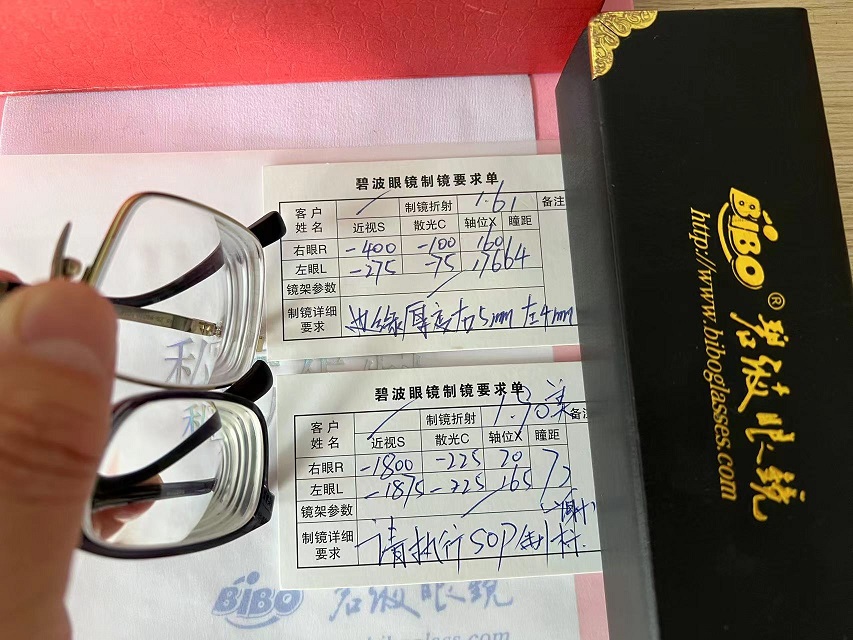 碧波眼镜制镜要求单
客户姓名 制镜折射 1.61 备注
近视S 散光C 轴位X 瞳距
右眼R -400 -100 160
左眼L -275 -75 176 64
镜架参数
制镜详细要求 边缘厚度右5mm 左4mm
碧波眼镜制镜要求单
客户姓名 制镜折射 1.70 美 备注
近视S 散光C 轴位X 瞳距
右眼R -1800 -225 20 72
左眼L -1875 -225 165
镜架参数
制镜详细要求 请执行SOP制衬 谢
BiBO 碧波眼镜
BiBO® 碧波眼镜
http://www.biboglasses.com